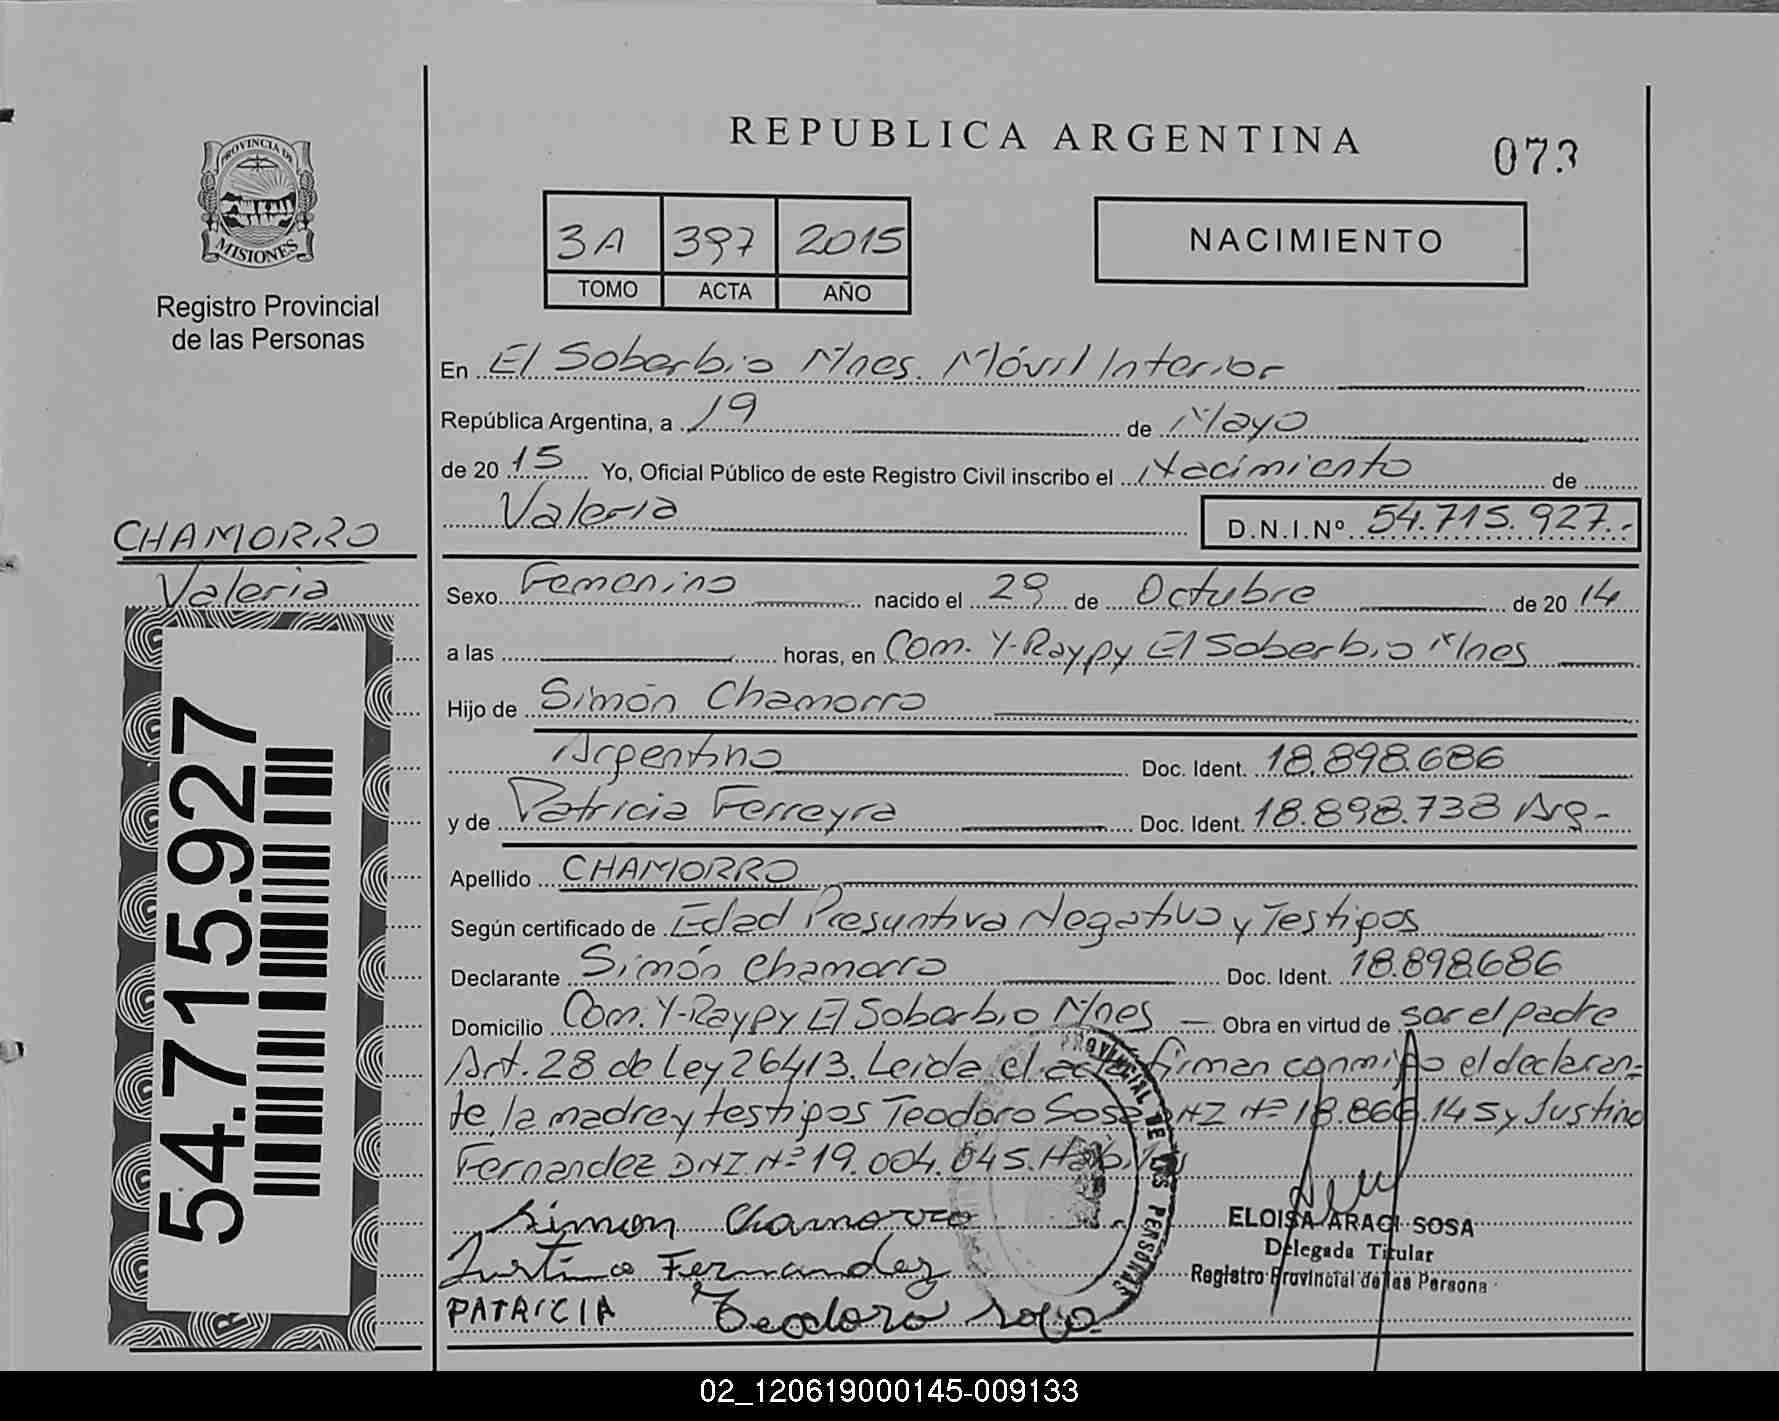 REPUBLICA ARGENTINA
073
PROVINCIA DE
MISIONES
Registro Provincial
de las Personas
3A 397 2015
TOMO ACTA AÑO
NACIMIENTO
En El Soberbio Mnes. Móvil Interior
República Argentina, a 19 de Mayo
de 20 15 Yo, Oficial Público de este Registro Civil inscribo el Nacimiento de
Valeria D.N.I.Nº 54.715.927.-
CHAMORRO
Valeria
54.715.927
Sexo Femenino nacido el 29 de Octubre de 20 14
a las horas, en Com. Y-Raypy El Soberbio Mnes
Hijo de Simón Chamorro
Argentino Doc. Ident. 18.898.686
y de Patricia Ferreyra Doc. Ident. 18.898.738 Arg-
Apellido CHAMORRO
Según certificado de Edad Presuntiva Negativo y Testigos
Declarante Simón Chamorro Doc. Ident. 18.898686
Domicilio Com. Y-Raypy El Soberbio Mnes — Obra en virtud de ser el padre
Art. 28 de Ley 26413. Leida el acta firman conmigo el declaran=
te, la madre y testigos Teodoro Sosa DNI Nº 18.868.145 y Justino
Fernandez DNI Nº 19.004.045. Hábiles
PROVINCIAL DE LAS PERSONAS
Simon Chamorro
Justino Fernandez
PATRICIA Teodoro sosa
ELOISA ARACI SOSA
Delegada Titular
Registro Provincial de las Persona
02_120619000145-009133